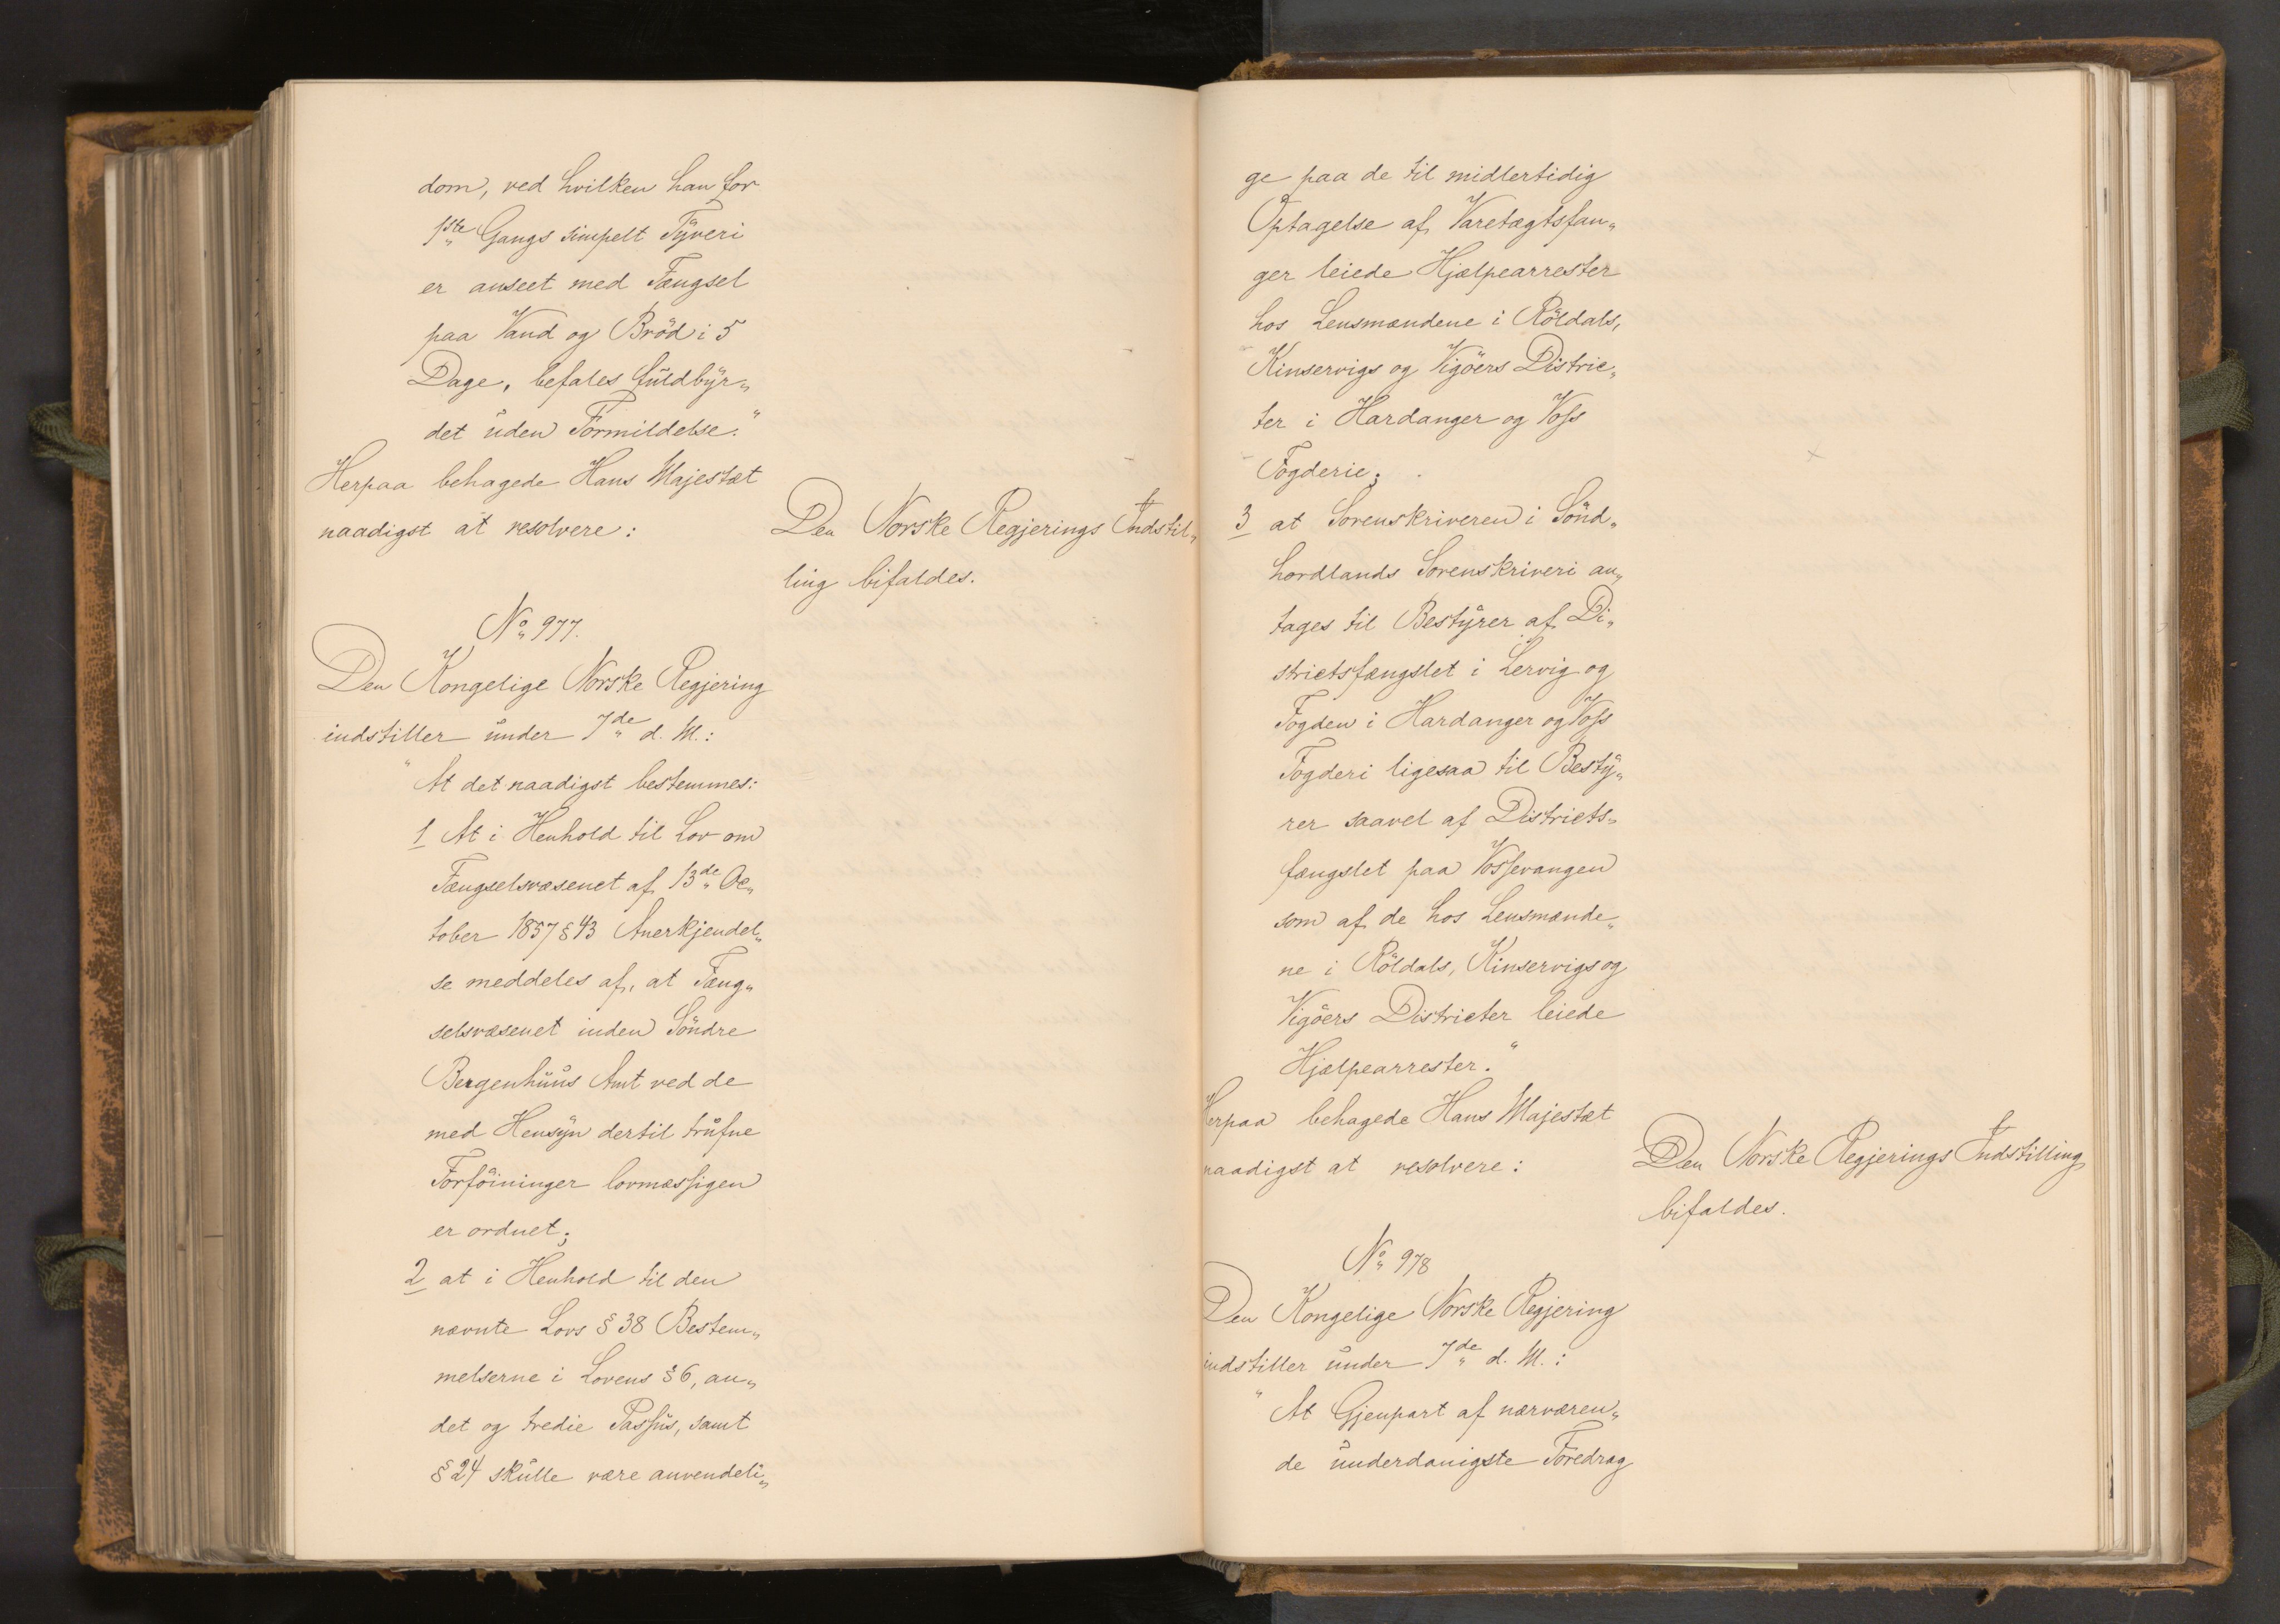 dom, ved hvilken han for
1ste Gangs simpelt Tyveri
er anseet med Fængsel
paa Vand og Bröd i 5
Dage, befales fuldbyr„
det uden Formildelse."
Herpaa behagede Hans Majestæt
naadigst at resolvere:
Den Norske Regjerings Indstil„
ling bifaldes.
No 977.
Den Kongelige Norske Regjering
indstiller under 7de d. M.:
"At det naadigst bestemmes:
1 At i Henhold til Lov om
Fængselsvæsenet af 13de Oc„
tober 1857 § 43 Anerkjendel„
se meddeles af, at Fæng„
selsvæsenet inden Söndre
Bergenhuus Amt ved de
med Hensyn dertil trufne
Forföininger lovmæssigen
er ordnet;
2 at i Henhold til den
nævnte Lovs § 38 Bestem„
melserne i Lovens § 6, an„
det og tredie Passus, samt
§ 24 skulle være anvendeli„
ge paa de til midlertidig
Optagelse af Varetægtsfan„
ger leiede Hjælpearrester
hos Lensmændene i Röldals,
Kinservigs og Vigöers Distric„
ter i Hardanger og Voss
Fogderie;
3 at Sorenskriveren i Sönd„
hordlands Sorenskriveri an„
tages til Bestyrer af Di„
strictsfængslet i Lervig og
Fogden i Hardanger og Voss
Fogderi ligesaa til Besty„
rer saavel af Districts„
fængslet paa Vossevangen
som af de hos Lensmænde„
ne i Röldals, Kinservigs og
Vigöers Districter leiede
Hjælpearrester."
Herpaa behagede Hans Majestæt
naadigst at resolvere:
Den Norske Regjerings Indstilling
bifaldes.
No 978
Den Kongelige Norske Regjering
indstiller under 7de d. M.:
"At Gjenpart af nærværen„
de underdanigste Foredrag